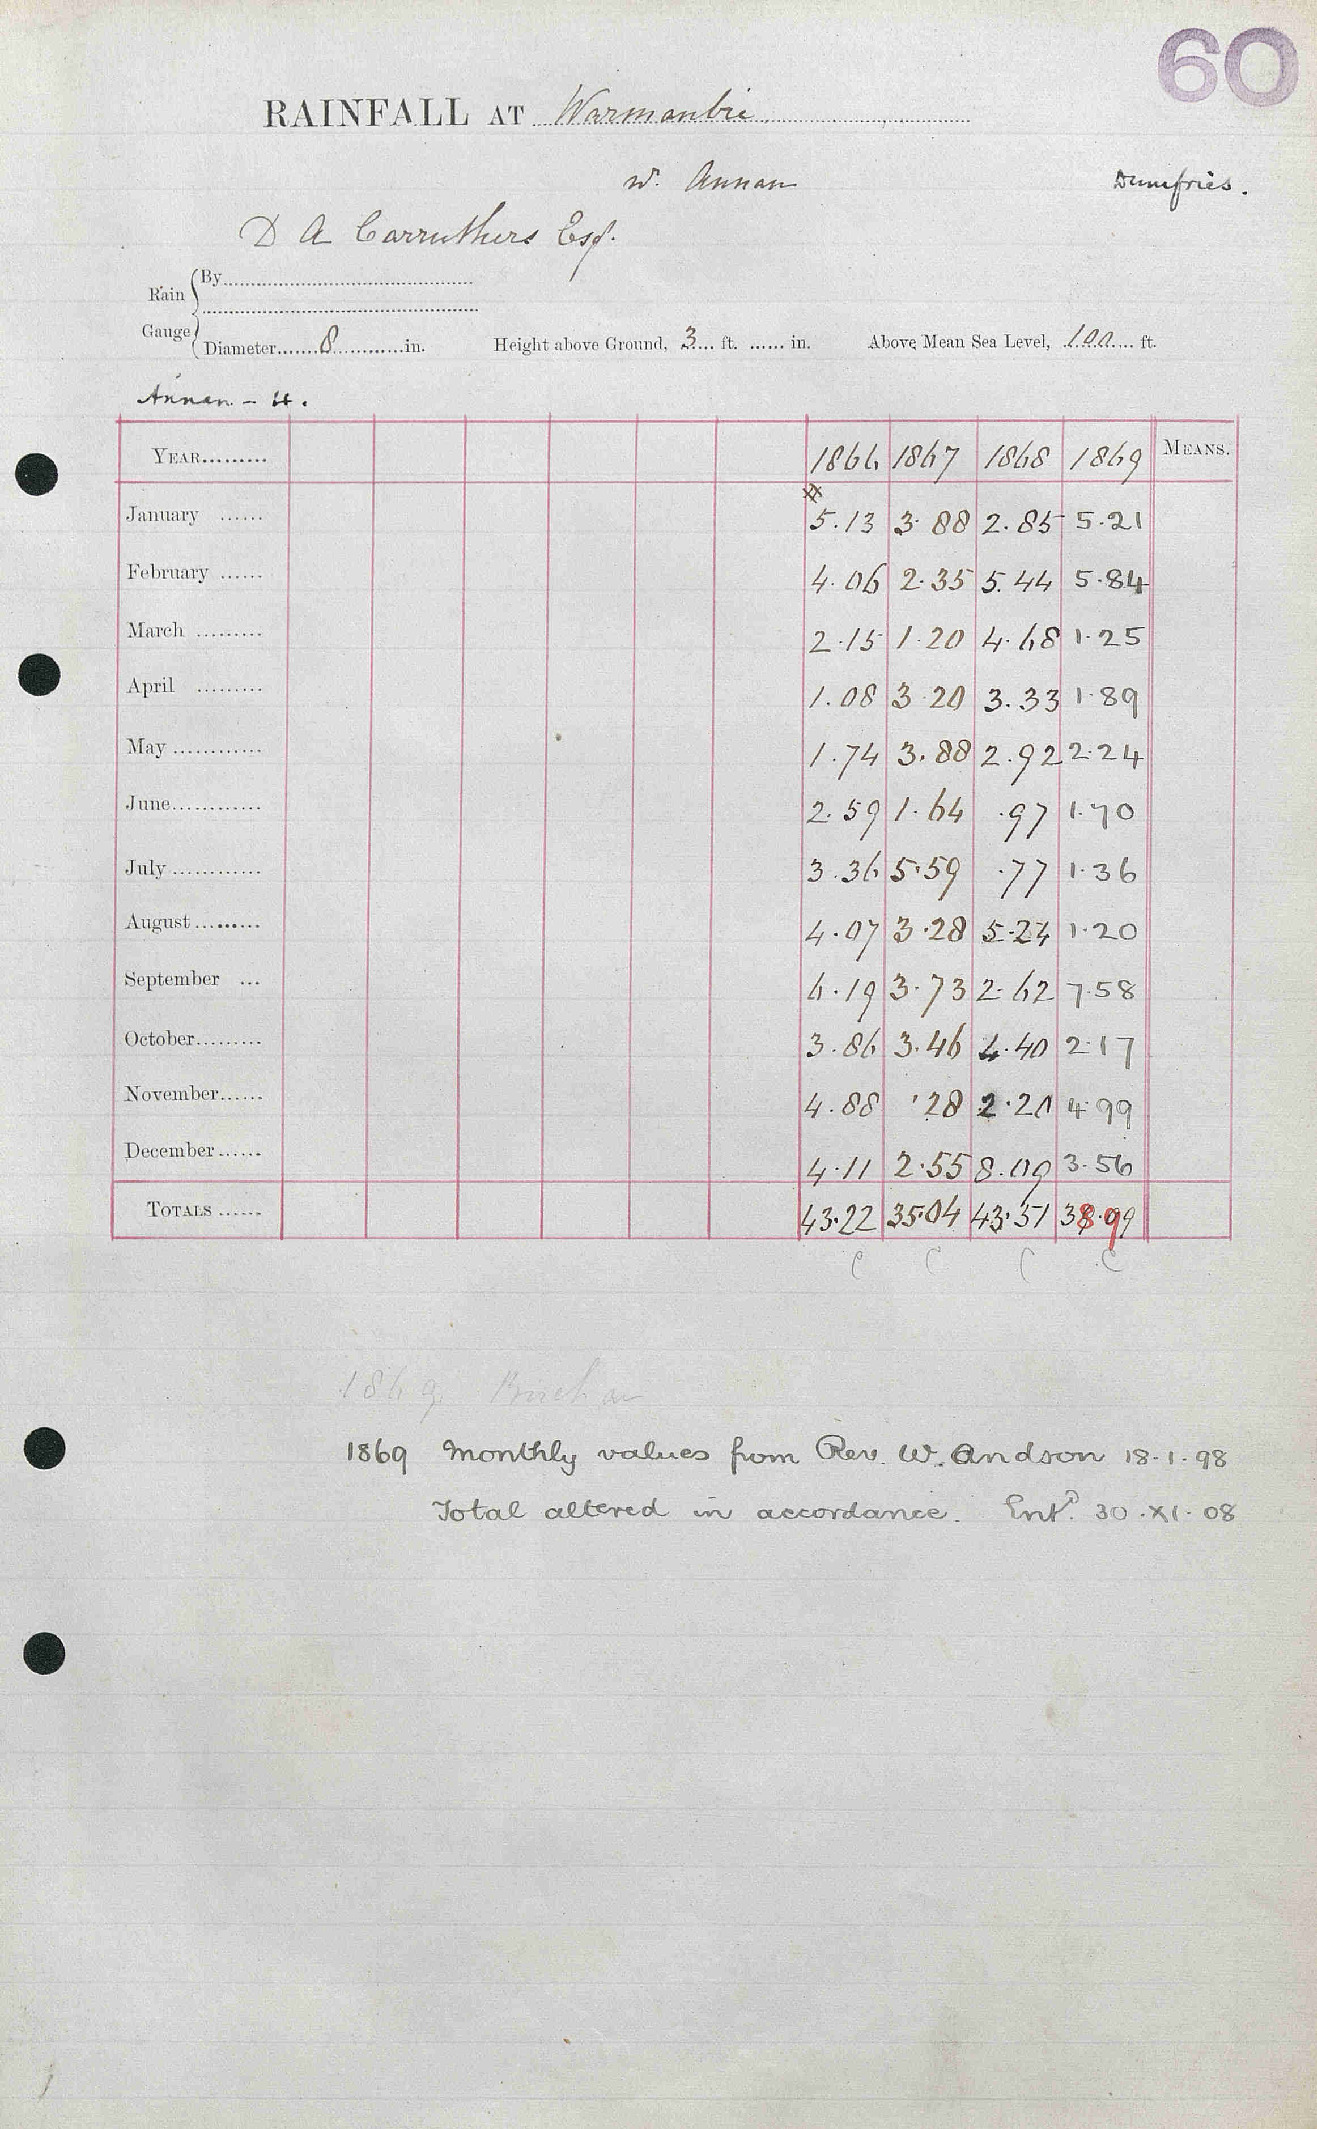 60
RAINFALL AT Warmanbie
W. Annan Dumfries.
D A Carruthers Esq.
Rain Gauge
By
Diameter 8 in. Height above Ground, 3 ft. in. Above Mean Sea Level, 100 ft.
Annan - 4.
YEAR 1866 1867 1868 1869 MEANS.
January 5.13 3.88 2.85 5.21
February 4.06 2.35 5.44 5.84
March 2.15 1.20 4.68 1.25
April 1.08 3.20 3.33 1.89
May 1.74 3.88 2.92 2.24
June 2.59 1.64 .97 1.70
July 3.36 5.59 .77 1.36
August 4.07 3.28 5.24 1.20
September 6.19 3.73 2.62 7.58
October 3.86 3.46 4.40 2.17
November 4.88 .28 2.20 4.99
December 4.11 2.55 8.09 3.56
TOTALS 43.22 35.04 43.51 38.99
C C C C
1869 Buchan
1869 Monthly values from Rev. W. Andson 18.1.98
Total altered in accordance. Entd. 30.XI.08